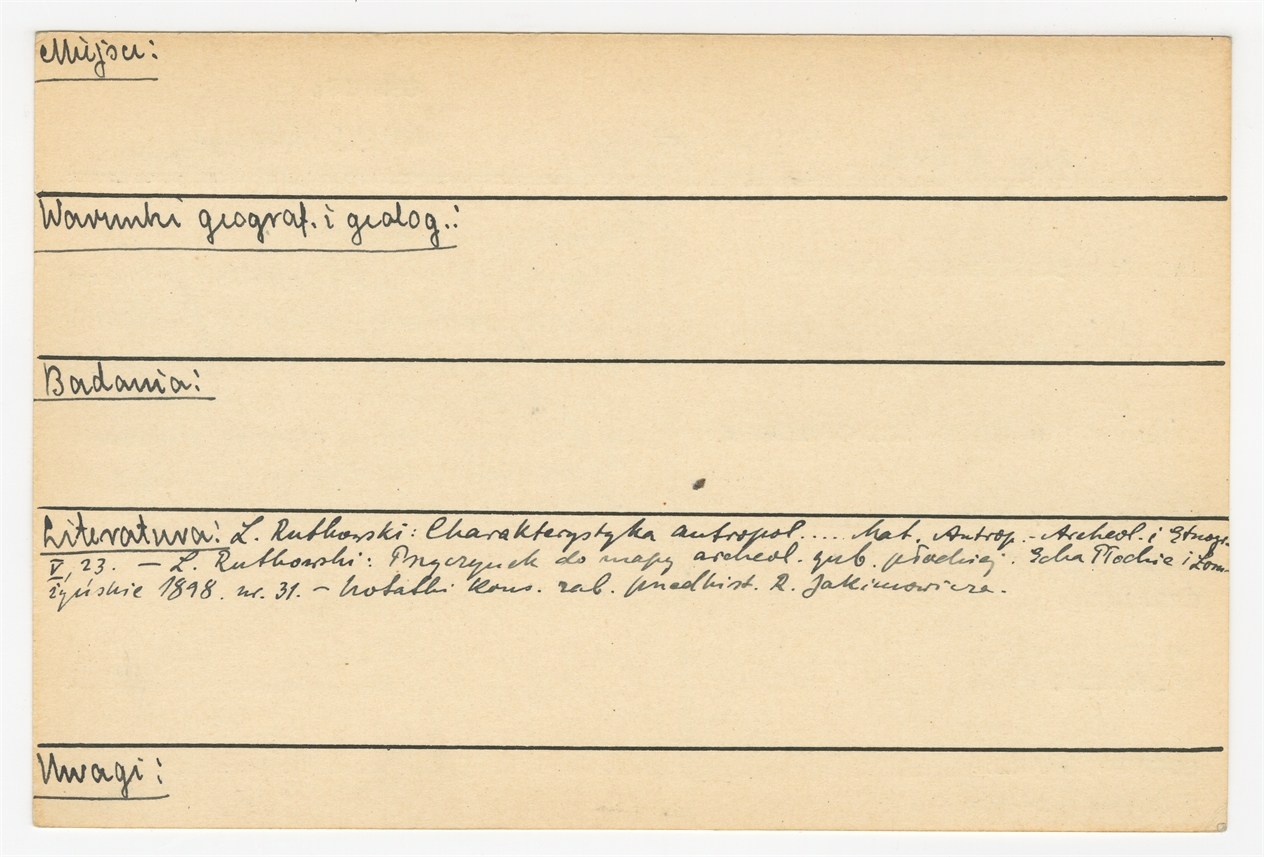 Miejsce:
Warunki geograf. i geolog.:
Badania:
Literatura: L. Rutkowski: Charakterystyka antropol.... Mat. Antrop.-Archeol. i Etnogr.
V, 23. – L. Rutkowski: Przyczynek do mapy archeol. gub. płockiej. Echa Płockie i Łom-
żyńskie 1898. nr. 31. – Notatki Kons. zab. przedhist. R. Jakimowicza.
Uwagi: